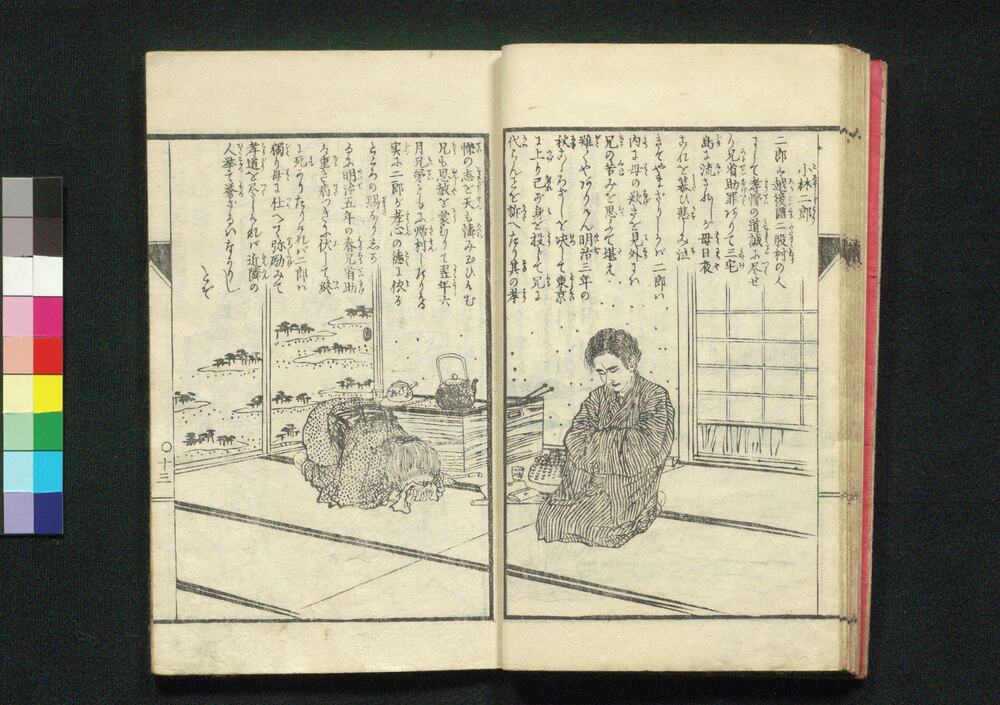 小林二郎
二郎ハ越後國二股村の人
にして孝悌の道誠に尽せ
り兄省助罪ありて三宅
島に流されしが母日夜
これを慕ひ悲しみ泣
きてやまざりしかバ二郎ハ
内にハ母の歎きを見外にハ
兄の苦みを思ふて堪え
難くやありけん明治三年の
秋こゝろざしを决して東京
に上り己が身を投じて兄に
代らんことを訴へたり其の孝
悌の志を天も憐みひけむ
兄も恩赦を蒙むりて翌年六
月兄弟ともに帰村したりける
実に二郎が孝心の徳に依る
ところの賜なり然
るに明治五年の春兄省助
ハ重き病つきうち伏して終
に死うりたりけれバ二郎ハ
獨り母に仕へて弥励みて
孝道を尽しけれバ近隣の
人挙て誉ざるハなかりし
とぞ
〇十三